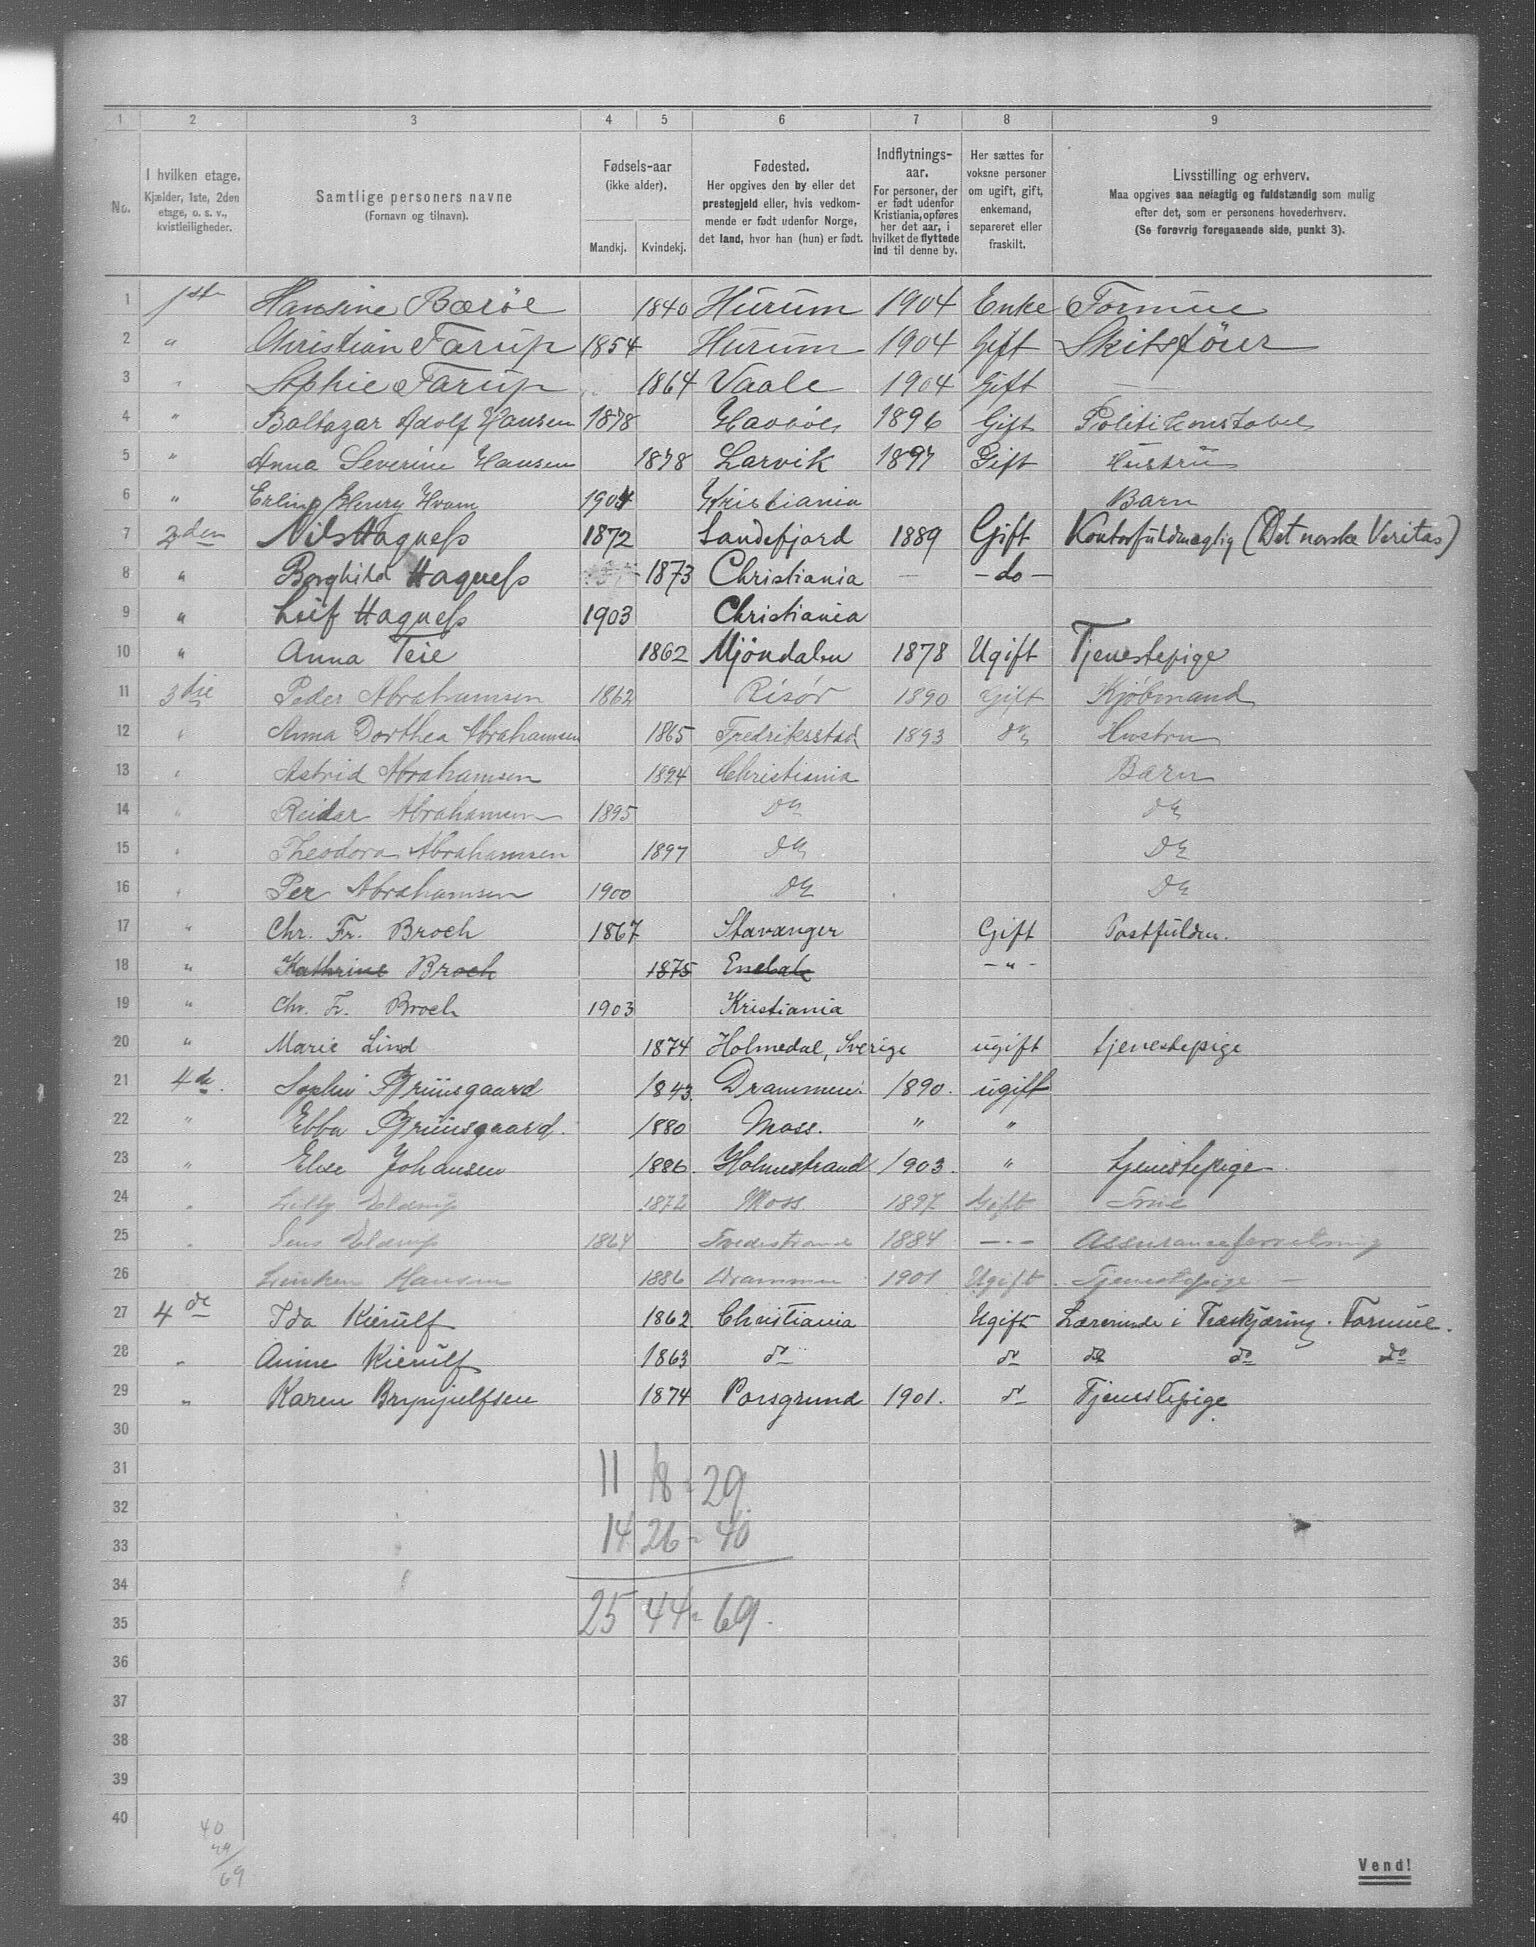 1 2 3 4 5 6 7 8 9
No.
I hvilken etage. Kjælder, 1ste, 2den etage, o. s. v., kvistleiligheder.
Samtlige personers navne (Fornavn og tilnavn).
Fødsels-aar (ikke alder). Mandkj. Kvindekj.
Fødested. Her opgives den by eller det prestegjeld eller, hvis vedkommende er født udenfor Norge, det land, hvor han (hun) er født.
Indflytnings-aar. For personer, der er født udenfor Kristiania, opføres her det aar, i hvilket de flyttede ind til denne by.
Her sættes for voksne personer om ugift, gift, enkemand, separeret eller fraskilt.
Livsstilling og erhverv. Maa opgives saa nøiagtig og fuldstændig som mulig efter det, som er personens hovederhverv. (Se forøvrig foregaaende side, punkt 3).
1 1ste Hansine Bærøe 1840 Hurum 1904 Enke Formue
2 " Christian Færup 1854 Hurum 1904 Gift
3 " Sophie Færup 1864 Vaale 1904 Gift —
4 " Baltazar Adolf Hansen 1878 1896 Gift Politikonstabel
5 " Anna Severine Hansen 1878 Larvik 1897 Gift Hustru
6 " Erling Henry Hvam 1904 Kristiania Barn
7 2den Nils Hagness 1872 Sandefjord 1889 Gift Kontorfuldmægtig (Det norske Veritas)
8 " Borghild Hagness 1873 Christiania — -do-
9 " Leif Hagness 1903 Christiania
10 " Anna Teie 1862 Mjöndalen 1878 Ugift Tjenestepige
11 3die Peder Abrahamsen 1862 Risör 1890 Gift Kjöbmand
12 " Anna Dorthea Abrahamsen 1865 Fredriksstad 1893 do Hustru
13 " Astrid Abrahamsen 1894 Christiania Barn
14 " Reidar Abrahamsen 1895 Do Do
15 " Theodora Abrahamsen 1897 Do Do
16 " Per Abrahamsen 1900 Do Do
17 " Chr. Fr. Broch 1867 Stavanger Gift Postfuldm.
18 " Kathrine Broch 1875 Enebak - " -
19 " Chr. Fr. Broch 1903 Kristiania
20 " Marie Lind 1874 Holmedal, Sverige ugift tjenestepige
21 4de. 1843 Drammen 1890. ugift
22 " Ebba 1880 Moss. " "
23 " Else Johansen 1886 Holmestrand 1903. " tjenestepige
24 " Lilly Elderup 1872 Moss 1897 Gift Frue
25 " Jens Elderup 1864 Tvedestrand 1884 - " - Assuranceforretning
26 Hansen 1886 Drammen 1901 Ugift Tjenestepige
27 4de Ida Kierulf 1862 Christiania Ugift Lærerinde i Træskjæring. Formue.
28 " Anine Kierulf 1863 do do do do do
29 " Karen Brynjulfsen 1874 Porsgrund 1901. do Tjenestepige
30
31 11 18 = 29
32
33 14 26 = 40
34
35 25 44 = 69.
36
37
38
39
40
40
29
69
Vend!